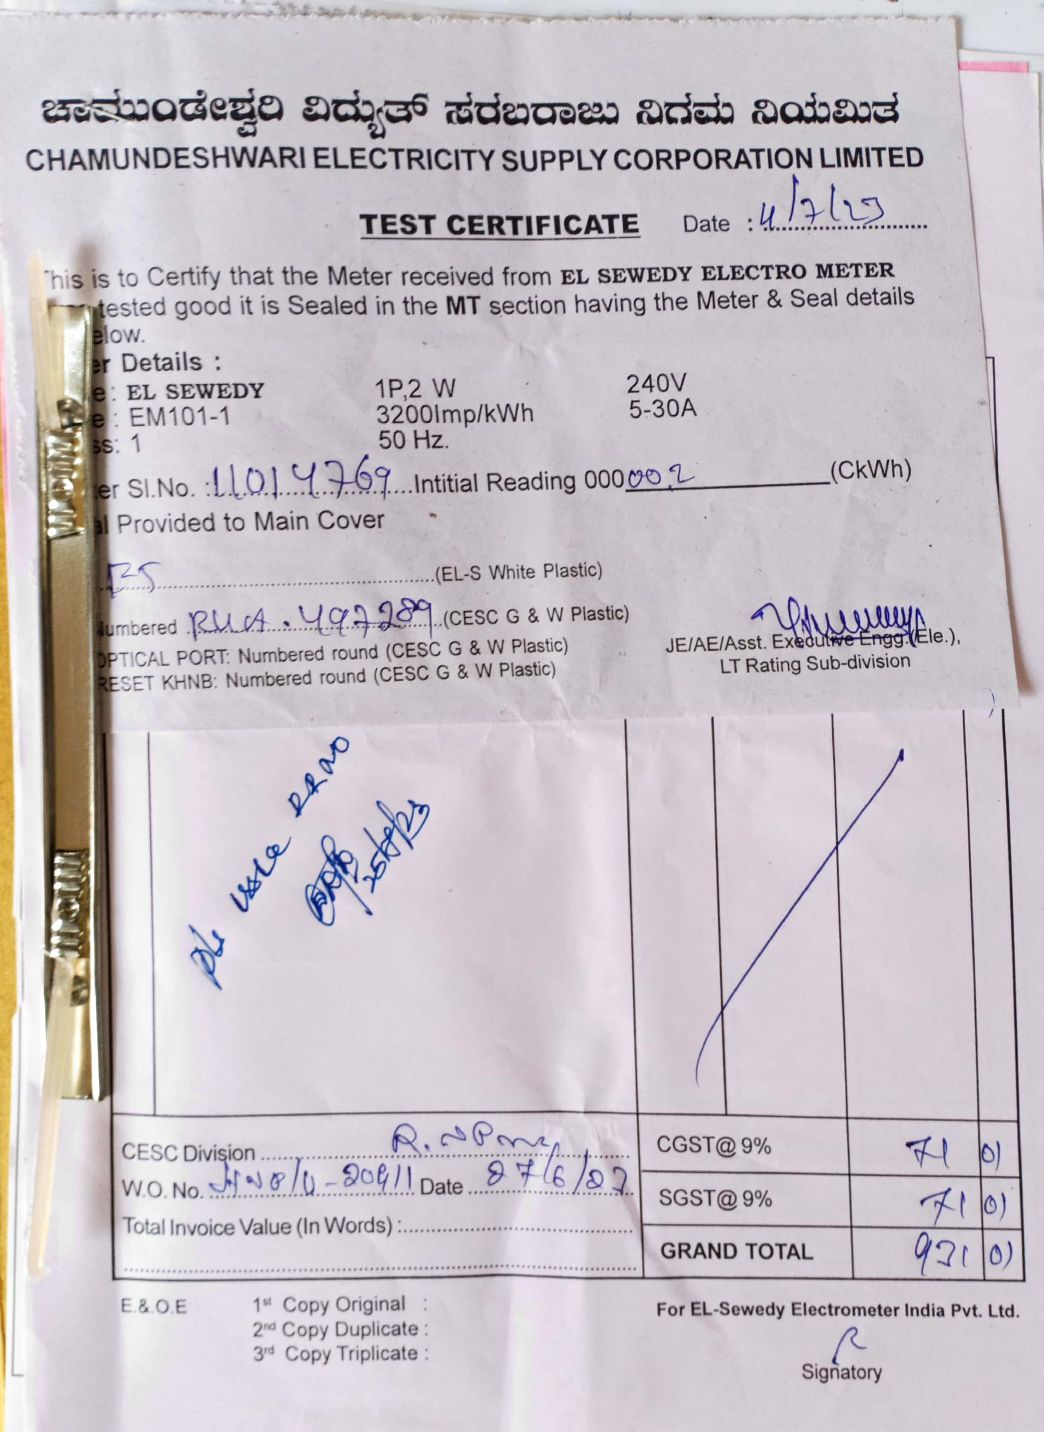 ಚಾಮುಂಡೇಶ್ವರಿ ವಿದ್ಯುತ್ ಸರಬರಾಜು ನಿಗಮ ನಿಯಮಿತ
CHAMUNDESHWARI ELECTRICITY SUPPLY CORPORATION LIMITED
TEST CERTIFICATE Date : 4/7/23
This is to Certify that the Meter received from EL SEWEDY ELECTRO METER
tested good it is Sealed in the MT section having the Meter & Seal details
elow.
er Details :
e : EL SEWEDY 1P,2 W 240V
e : EM101-1 3200Imp/kWh 5-30A
ss: 1 50 Hz.
er Sl.No. : 11014769 Intitial Reading 00000.2 (CkWh)
al Provided to Main Cover
(EL-S White Plastic)
umbered 497289 (CESC G & W Plastic)
OPTICAL PORT: Numbered round (CESC G & W Plastic)
RESET KHNB: Numbered round (CESC G & W Plastic)
JE/AE/Asst. Exedutive Engg.(Ele.),
LT Rating Sub-division
CESC Division
W.O. No. Date 27/6/23
Total Invoice Value (In Words) :
CGST@ 9% 71 01
SGST@ 9% 71 01
GRAND TOTAL 931 01
E.& O.E
1st Copy Original :
2nd Copy Duplicate :
3rd Copy Triplicate :
For EL-Sewedy Electrometer India Pvt. Ltd.
Signatory